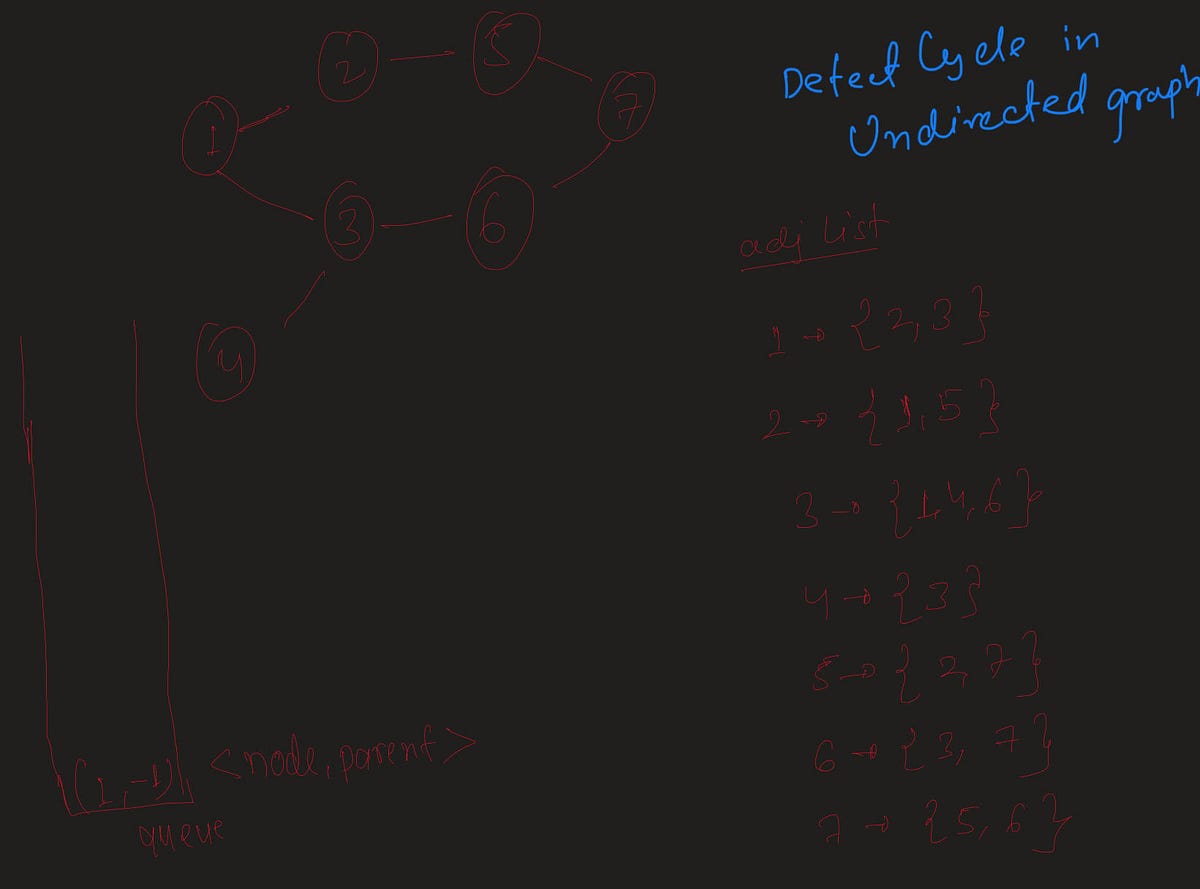 2
5
7
1
3
6
4
Detect Cycle in
Undirected graph
adj list
1 → {2, 3}
2 → {1, 5}
3 → {1, 4, 6}
4 → {3}
5 → {2, 7}
6 → {3, 7}
7 → {5, 6}
(1, -1) <node, parent>
queue